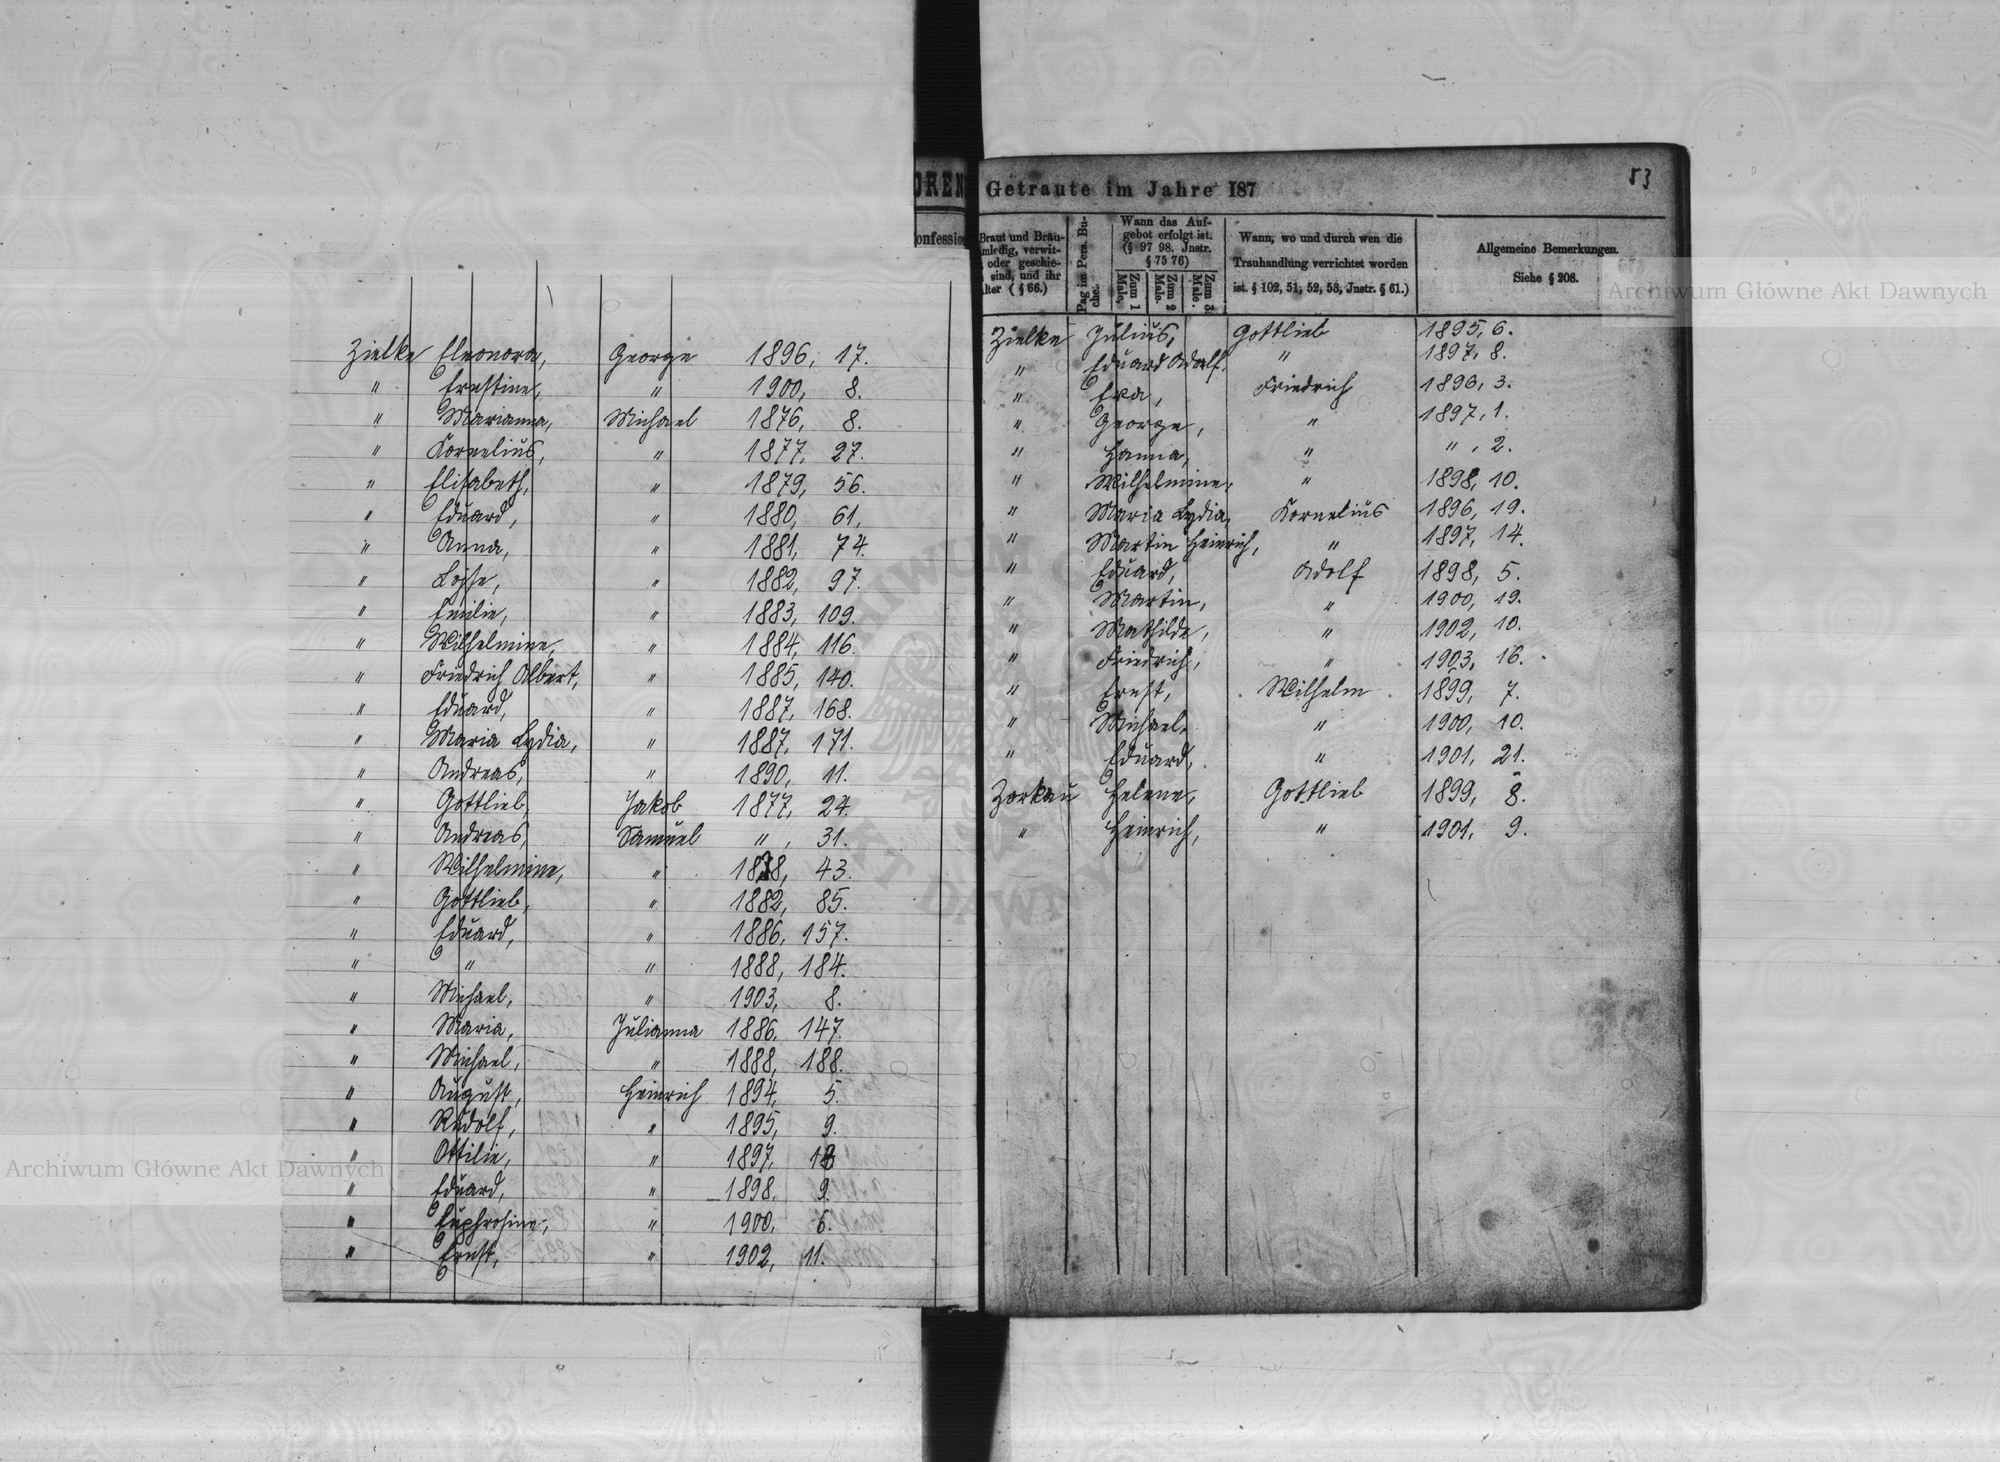 Zielke Eleonora, George 1896, 17.
" Ernstine, " 1900, 8.
" Marianna, Michael 1876, 8.
" Kornelius, " 1877, 27.
" Elisabeth, " 1879, 56.
" Eduard, " 1880, 61.
" Anna, " 1881, 74.
" " 1882, 97.
" Emilie, " 1883, 109.
" Wilhelmine, " 1884, 116.
" Friedrich Albert, " 1885, 140.
" Eduard, " 1887, 168.
" Maria Lydia, " 1887, 171.
" Andreas, " 1890, 11.
" Gottlieb, Jakob 1877, 24.
" Andreas, Samuel " , 31.
" Wilhelmine, " 1878, 43.
" Gottlieb, " 1882, 85.
" Eduard, " 1886, 157.
" " " 1888, 184.
" Michael, " 1903, 8.
" Maria, Julianna 1886, 147.
" Michael, " 1888, 188.
" August, Heinrich 1894, 5.
" Rudolf, " 1895, 9.
" Ottilie, " 1897,
" Eduard, " 1898, 9.
" Euphrosine, " 1900, 6.
" Ernst, " 1902, 11.
OREN
onfession
Getraute im Jahre 187
53
Braut und Bräu-
mledig, verwit-
oder geschie-
sind, und ihr
lter (§ 66.)
Pag im Pers. Bu-
che.
Wann das Auf-
gebot erfolgt ist.
(§ 97 98. Jnstr.
§ 75 76)
Zum 1 Male,
Zum 2 Male.
Zum 3 Male.
Wann, wo und durch wen die
Trauhandlung verrichtet worden
ist. § 102, 51, 52, 53, Jnstr. § 61.)
Allgemeine Bemerkungen.
Siehe § 206.
Zielke Julius, Gottlieb 1895, 6.
" Eduard Adolf, " 1897, 8.
" Eva, Friedrich 1896, 3.
" George, " 1897, 1.
" Hanna, " " , 2.
" Wilhelmine, " 1898, 10.
" Maria Lydia, Kornelius 1896, 19.
" Martin Heinrich, " 1897, 14.
" Eduard, Adolf 1898, 5.
" Martin, " 1900, 19.
" Mathilde, " 1902, 10.
" Friedrich, " 1903, 16.
" Ernst, Wilhelm 1899, 7.
" Michael, " 1900, 10.
" Eduard, " 1901, 21.
Zorkau Helene, Gottlieb 1899, 8.
" Heinrich, " 1901, 9.
Archiwum Główne Akt Dawnych
Archiwum Główne Akt Dawnych